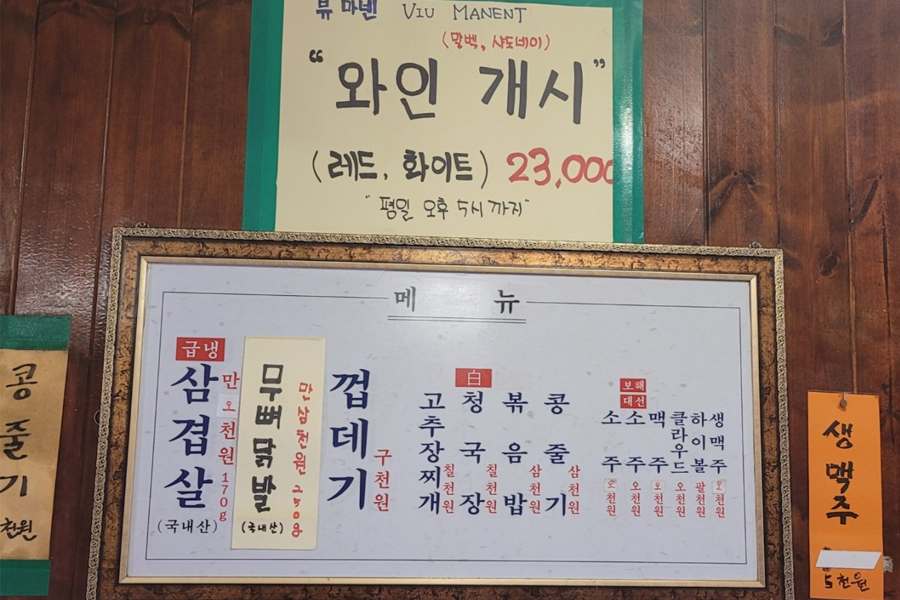 뷰 마넨 VIU MANENT
(말벡, 샤도네이)
“와인 개시”
(레드, 화이트) 23,000
"평일 오후 5시까지"
메 뉴
급냉
삼겹살 만오천원 170g
(국내산)
무뼈닭발 만삼천원 250g
(국내산)
껍데기 구천원
고추장찌개 칠천원
白
청국장 칠천원
볶음밥 삼천원
콩줄기 삼천원
보해
대선
소주 오천원
소주 오천원
맥주 오천원
클라우드 오천원
하이볼 팔천원
생맥주 오천원
콩줄기
천원
생맥주
5천원